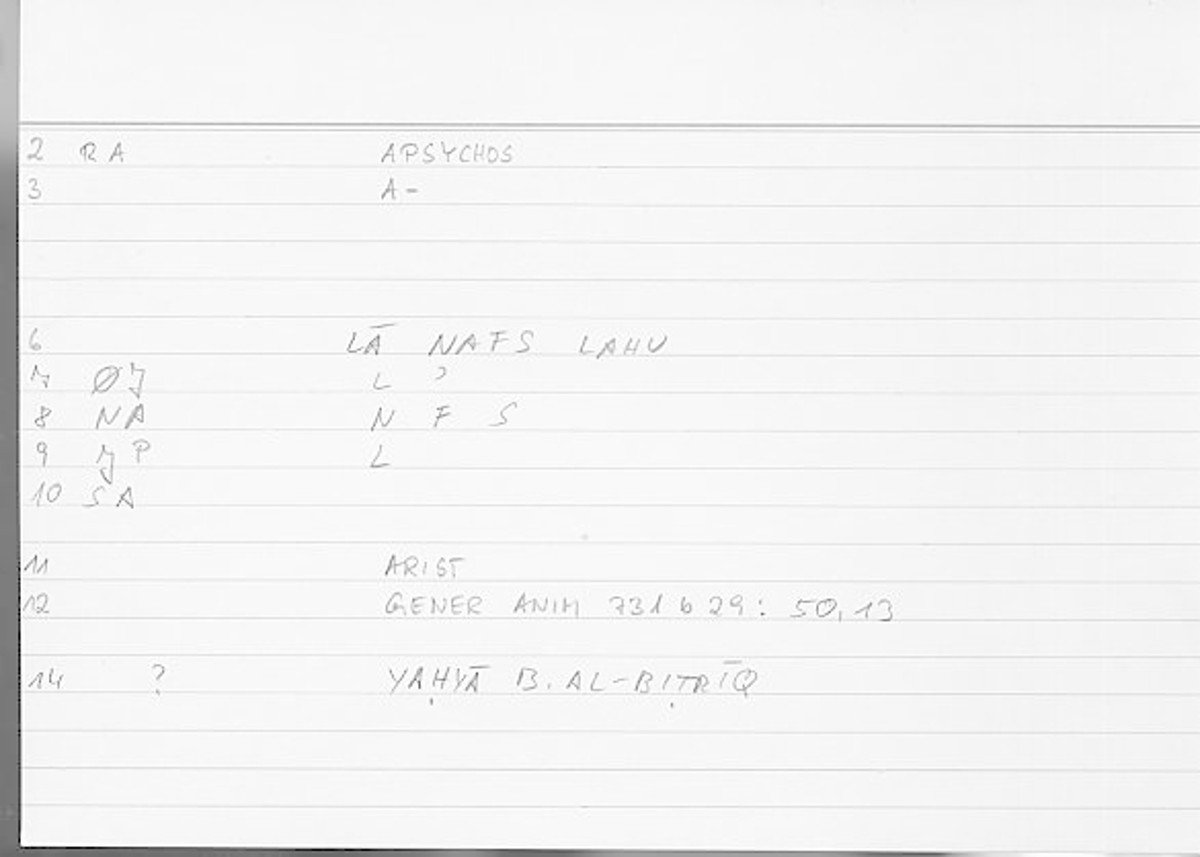 2 RA APSYCHOS
3 A-
6 LĀ NAFS LAHU
7 ØJ L ʾ
8 NA N F S
9 JP L
10 SA
11 ARIST
12 GENER ANIM 731 b 29: 50,13
14 ? YAḤYĀ B. AL-BIṬRĪQ